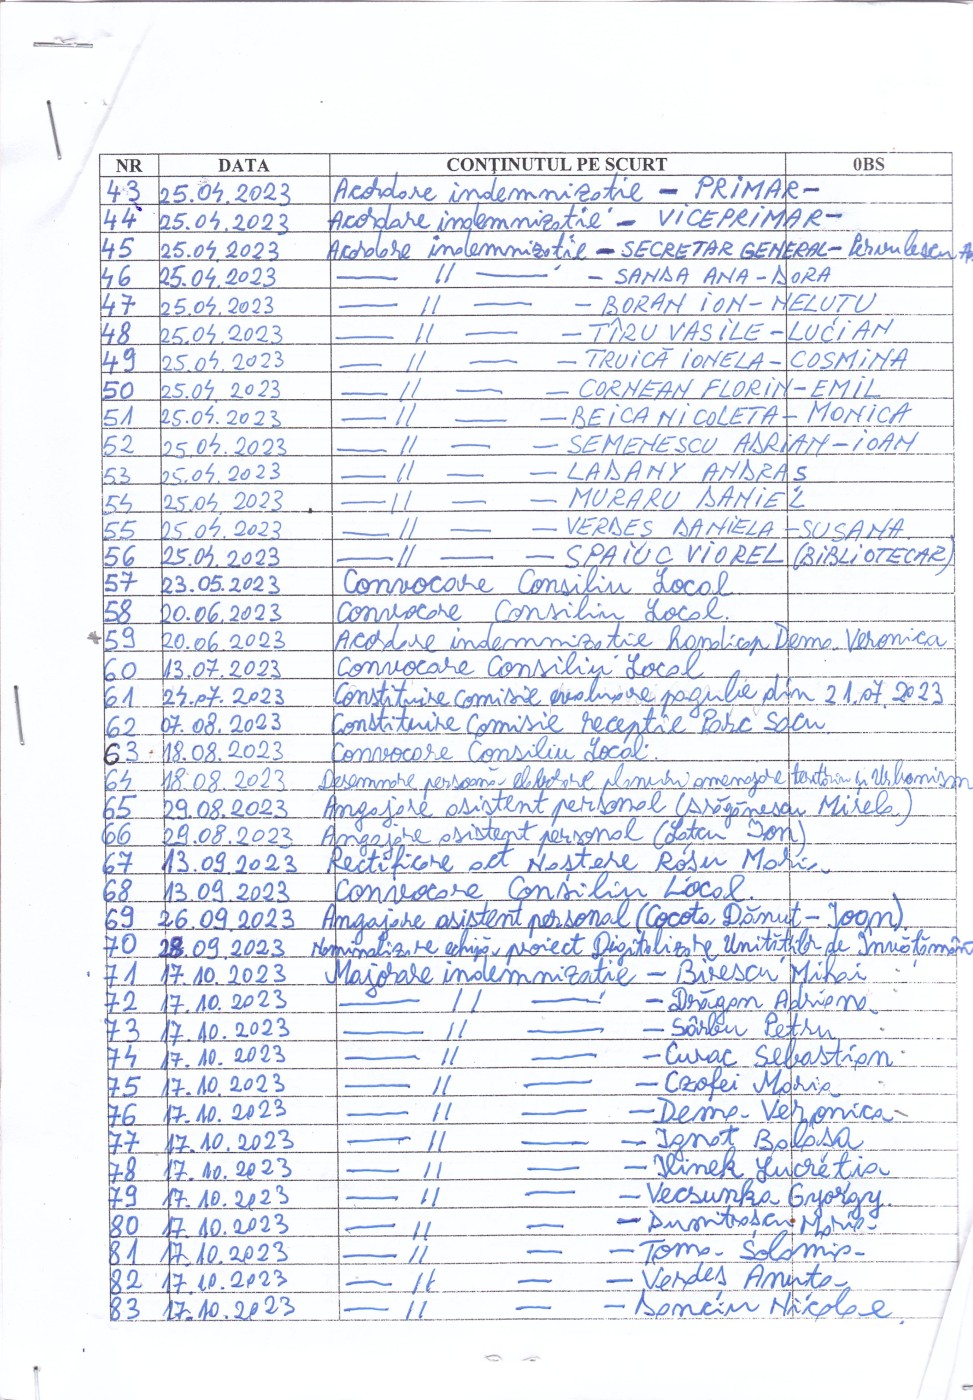 NR DATA CONȚINUTUL PE SCURT 0BS
43 25.04.2023 Acordare indemnizatie - PRIMAR-
44 25.04.2023 Acordare indemnizatie - VICEPRIMAR-
45 25.04.2023 Acordare indemnizatie - SECRETAR GENERAL- Pârvulescu
46 25.04.2023 — // — - SANDA ANA-DORA
47 25.04.2023 — // — - BORAN ION-NELUTU
48 25.04.2023 — // — - TÎRU VASILE-LUCIAN
49 25.04.2023 — // — - TRUICĂ IONELA-COSMINA
50 25.04.2023 — // — - CORNEAN FLORIN-EMIL
51 25.04.2023 — // — - BEICA NICOLETA-MONICA
52 25.04.2023 — // — - SEMENESCU ADRIAN-IOAN
53 25.04.2023 — // — - LADANY ANDRAS
54 25.04.2023 — // — - MURARU DANIEL
55 25.04.2023 — // — - VERDES DANIELA-SUSANA
56 25.04.2023 — // — - SPAIUC VIOREL (BIBLIOTECAR)
57 23.05.2023 Convocare Consiliu Local
58 20.06.2023 Convocare Consiliu Local.
59 20.06.2023 Acordare indemnizatie handicap Dema Veronica
60 13.07.2023 Convocare Consiliu Local
61 24.07.2023 Constituire comisie evaluare pagube din 21.07.2023
62 07.08.2023 Constituire Comisie receptie Parc Sacu
63 18.08.2023 Convocare Consiliu Local.
64 18.08.2023 Desemnare persoană elaborare planuri amenajare teritoriu și Urbanism
65 29.08.2023 Angajare asistent personal (Drăgănescu Mirela)
66 29.08.2023 Angajare asistent personal (Latcu Ion)
67 13.09.2023 Rectificare act Nastere Roșu Maria
68 13.09.2023 Convocare Consiliu Local.
69 26.09.2023 Angajare asistent personal (Cocota Dănut-Ioan)
70 28.09.2023 Nominalizare echipă proiect Digitalizare Unitătilor de Invătământ
71 17.10.2023 Majorare indemnizatie - Birescu Mihai
72 17.10.2023 — // — - Drăgan Adriana
73 17.10.2023 — // — - Sârbu Petru
74 17.10.2023 — // — - Curac Sebastian
75 17.10.2023 — // — - Czofei Maria
76 17.10.2023 — // — - Dema Veronica
77 17.10.2023 — // — - Ignat Balasa
78 17.10.2023 — // — - Ilinek Lucretia
79 17.10.2023 — // — - Vecsunka Gyorgy
80 17.10.2023 — // — - Dumitrascu Maria
81 17.10.2023 — // — - Toma Solomia
82 17.10.2023 — // — - Verdes Anuta
83 17.10.2023 — // — - Danciu Nicolae